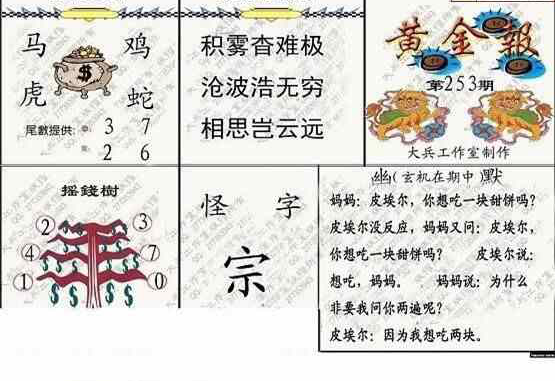 马 鸡
虎 蛇
尾數提供: 3 7
2 6
积雾杳难极
沧波浩无穷
相思岂云远
黄金報
第253期
大兵工作室制作
摇錢樹
2 3
4 7
1 0
怪 字
宗
幽(玄机在期中 默
妈妈：皮埃尔，你想吃一块甜饼吗？
皮埃尔没反应，妈妈又问：皮埃尔，
你想吃一块甜饼吗？ 皮埃尔说：
想吃，妈妈。 妈妈说：为什么
非要我问你两遍呢？
皮埃尔：因为我想吃两块。